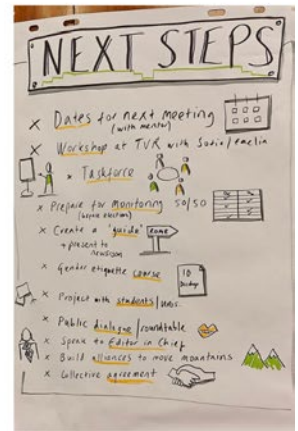 NEXT STEPS
x Dates for next meeting
(with mentor)
x Workshop at TVR with Sofia/Emelia
x Taskforce
x Prepare for monitoring 50/50
(before election)
x Create a 'guide'
→ present to
newsroom
x Gender etiquette course
10
x Project with students/
x Public dialogue/roundtable
x Speak to Editor in Chief
x Build alliances to move mountains
x Collective agreement